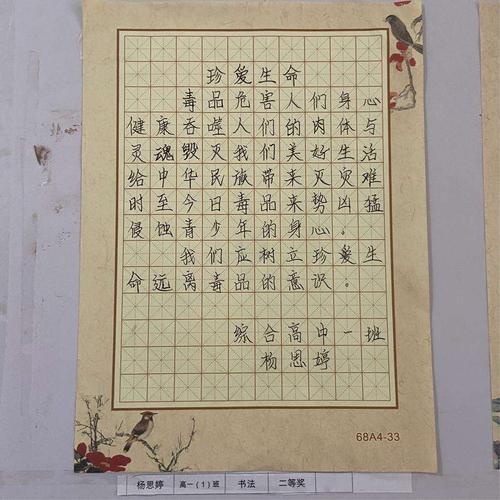 珍爱生命
毒品危害人们身心
健康吞噬人们的肉体与
灵魂毁灭我们美好生活
给中华民族带来灭灾难
时至今日毒品来势凶猛
侵蚀青少年的身心。
我们应树立珍爱生
命远离毒品的意识。
综合高中一班
杨思婷
68A4-33
杨思婷 高一（1）班 书法 二等奖